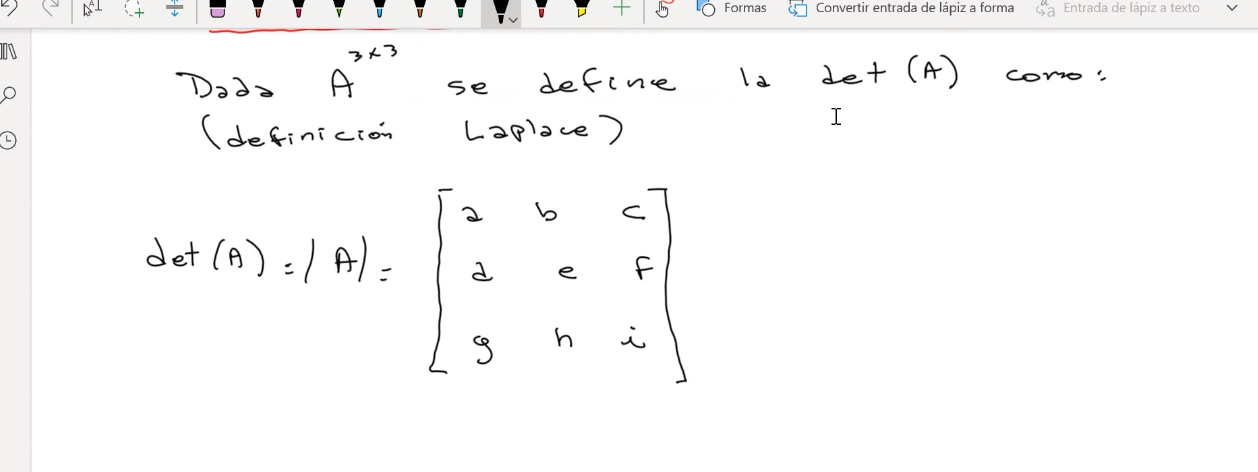 Formas Convertir entrada de lápiz a forma Entrada de lápiz a texto
Dada A^3x3 se define la det (A) como:
(definición Laplace)
det (A) = |A| =
a b c
d e f
g h i